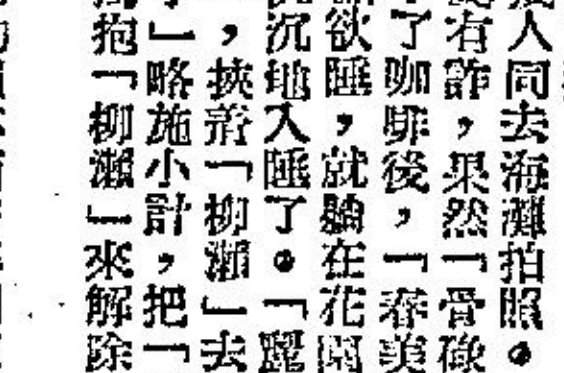 人同去海灘拍照。
有詐,果然「骨碌
了咖啡後,「春美
欲睡,就躺在花園
沉地入睡了。「麗
,挾著「柳瀨」去
」略施小計,把「
抱「柳瀨」來解除